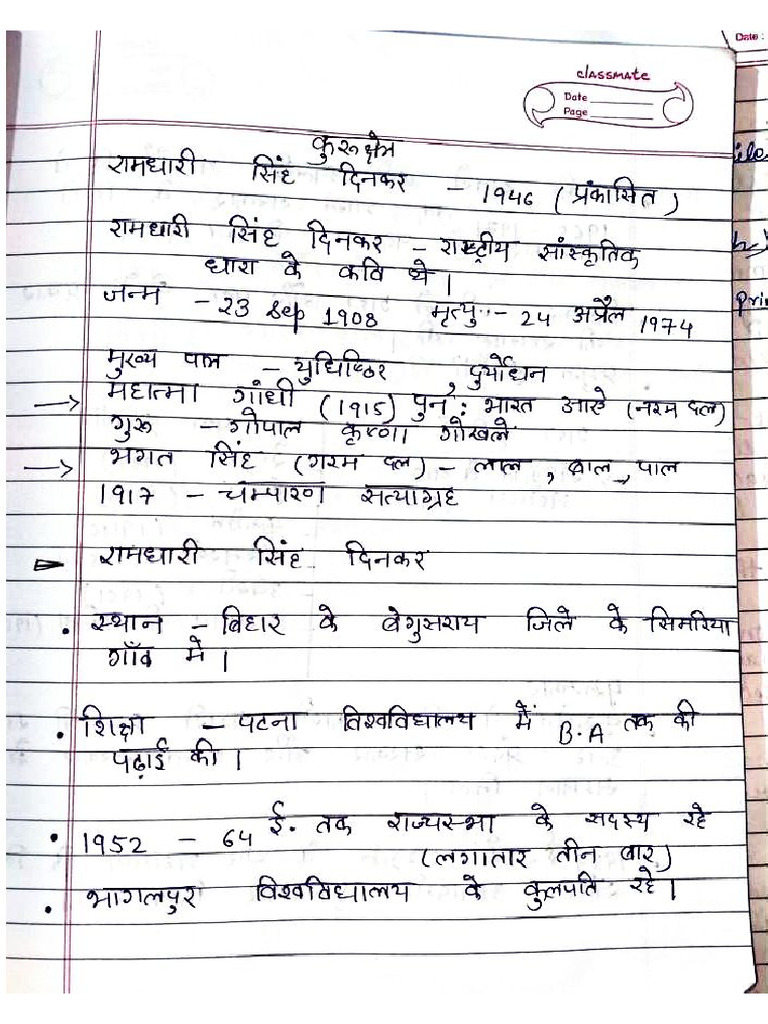 classmate
Date
Page
Date :
कुरुक्षेत्र
रामधारी सिंह दिनकर - 1946 (प्रंकासित)
रामधारी सिंह दिनकर - राष्ट्रीय सांस्कृतिक
धारा के कवि थे।
जन्म - 23 Sep 1908 मृत्यु :- 24 अप्रैल 1974
मुख्य पात्र - युधिष्ठिर, दुर्योधन
→ महात्मा गांधी (1915) पुन: भारत आऐ (नरम दल)
गुरु - गोपाल कृष्णा गोखले
→ भगत सिंह (गरम दल) - लाल, बाल, पाल
1917 - चम्पारण सत्याग्रह
रामधारी सिंह दिनकर
• स्थान - बिहार के बेगुसराय जिले के सिमरिया
गाँव में।
• शिक्षा - पटना विश्वविद्यालय में B.A तक की
पढ़ाई की।
• 1952 - 64 ई. तक राज्यस्भा के सदस्य रहे
(लगातार तीन बार)
• भागलपुर विश्वविद्यालय के कुलपति रहे।